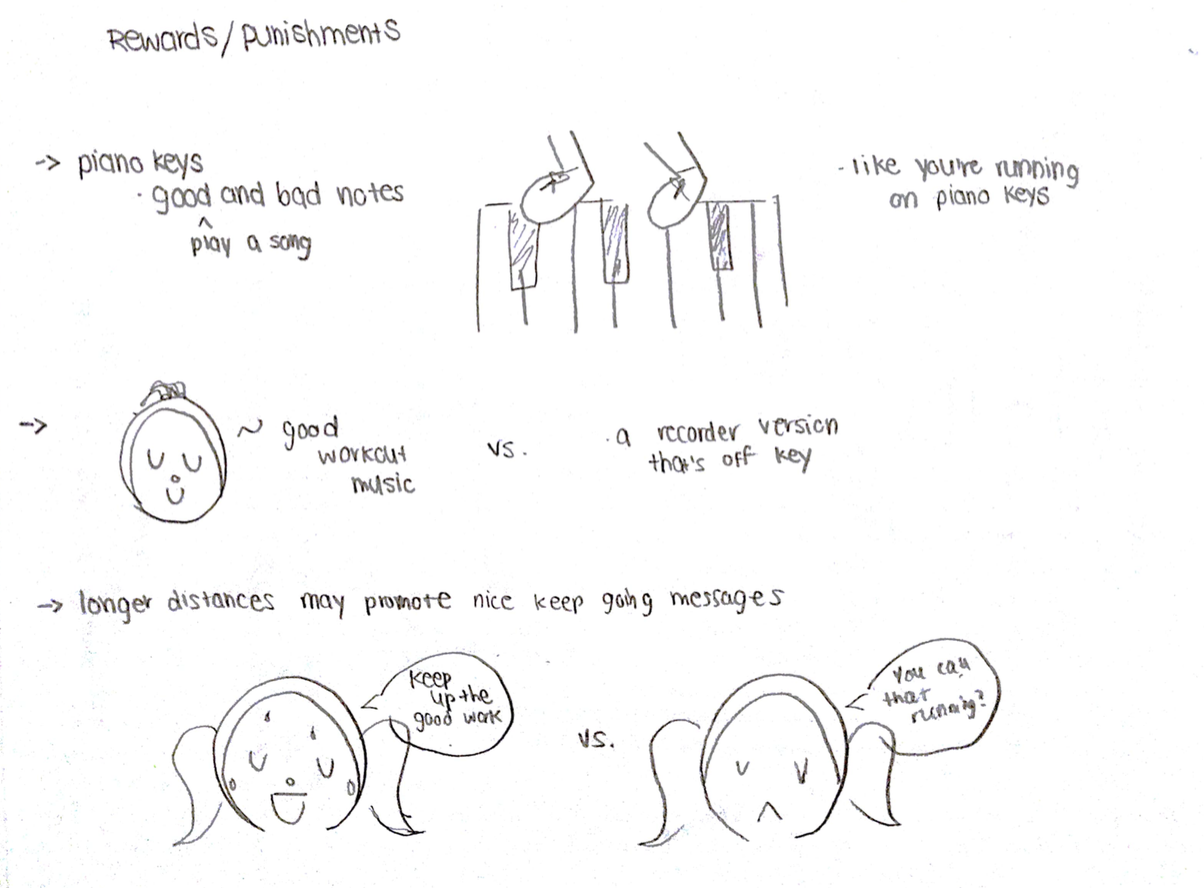 Rewards/punishments
-> piano keys
· good and bad notes
^
play a song
- like you're running
on piano keys
-> ~ good
workout
music
vs.
· a recorder version
that's off key
-> longer distances may promote nice keep going messages
keep
up the
good work
vs.
you call
that
running?